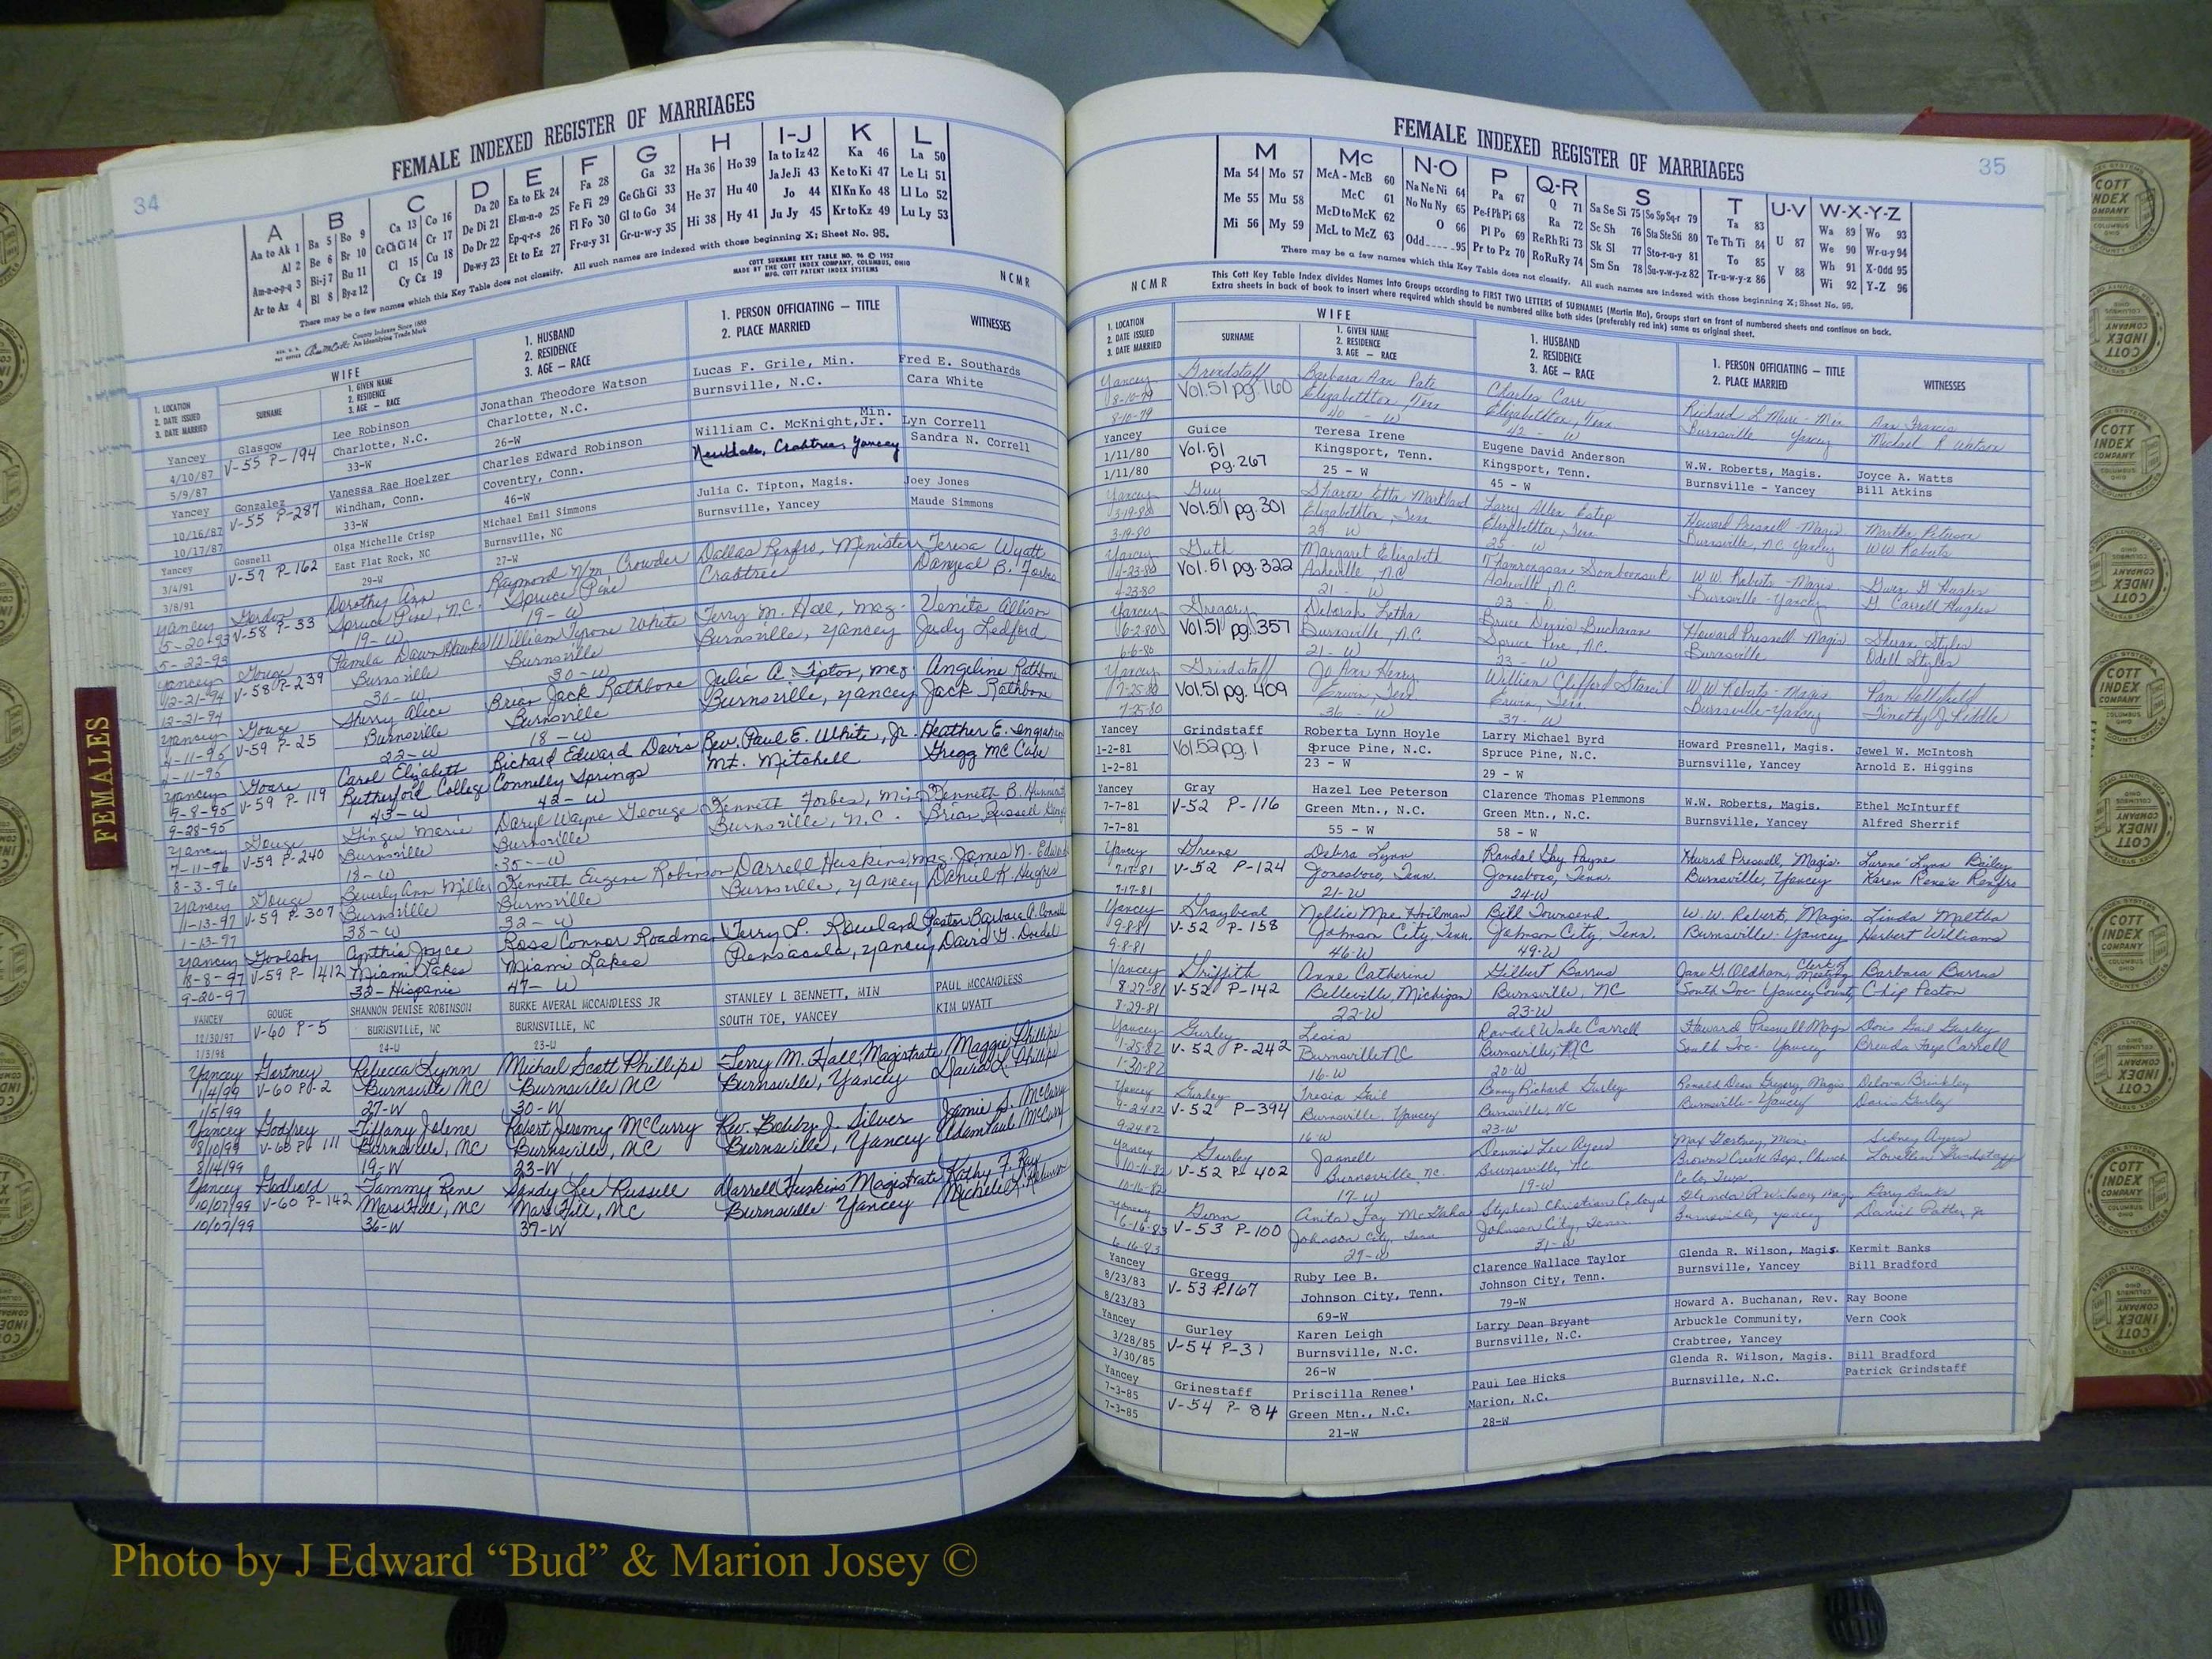 34
FEMALE INDEXED REGISTER OF MARRIAGES
A B C D E F G H I-J K L
Aa to Ak 1 Ba 5 Bo 9 Ca 13 Co 16 Da 20 Ea to Ek 24 Fa 28 Ga 32 Ha 36 Ho 39 Ia to Iz 42 Ka 46 La 50
Al 2 Be 6 Br 10 Ce Ch Ci 14 Cr 17 De Di 21 El-m-n-o 25 Fe Fi 29 Ge Gh Gi 33 He 37 Hu 40 Ja Je Ji 43 Ke to Ki 47 Le Li 51
Am-n-o-p-q 3 Bi-j 7 Bu 11 Cl 15 Cu 18 Do Dr 22 Ep-q-r-s 26 Fl Fo 30 Gl to Go 34 Hi 38 Hy 41 Jo 44 Kl Kn Ko 48 Ll Lo 52
Ar to Az 4 Bl 8 By-z 12 Cy Cz 19 Du-w-y 23 Et to Ez 27 Fr-u-y 31 Gr-u-w-y 35 Ju Jy 45 Kr to Kz 49 Lu Ly 53
There may be a few names which this Key Table does not classify. All such names are indexed with those beginning X; Sheet No. 95.
County Indexes Since 1888
An Identifying Trade Mark
COTT SURNAME KEY TABLE NO. 96 © 1952
MADE BY THE COTT INDEX COMPANY, COLUMBUS, OHIO
MFG. COTT PATENT INDEX SYSTEMS
NCMR
1. LOCATION
2. DATE ISSUED
3. DATE MARRIED
WIFE
SURNAME
1. GIVEN NAME
2. RESIDENCE
3. AGE — RACE
1. HUSBAND
2. RESIDENCE
3. AGE — RACE
1. PERSON OFFICIATING — TITLE
2. PLACE MARRIED
WITNESSES
Yancey Glasgow Lee Robinson Jonathan Theodore Watson Lucas F. Grile, Min. Fred E. Southards
4/10/87 V-55 P-194 Charlotte, N.C. Charlotte, N.C. Burnsville, N.C. Cara White
5/9/87 33-W 26-W
Yancey Gonzalez Vanessa Rae Hoelzer Charles Edward Robinson William C. McKnight, Jr. Min. Lyn Correll
10/16/87 V-55 P-287 Windham, Conn. Coventry, Conn. Newdale, Crabtree, Yancey Sandra N. Correll
10/17/87 33-W 46-W
Yancey Gosnell Olga Michelle Crisp Michael Emil Simmons Julia C. Tipton, Magis. Joey Jones
3/4/91 V-57 P-162 East Flat Rock, NC Burnsville, NC Burnsville, Yancey Maude Simmons
3/8/91 29-W 27-W
Yancey Gordon Dorothy Ann Raymond N/m Crowder Dallas Renfro, Minister Teresa Wyatt
5-20-93 V-58 P-33 Spruce Pine, N.C. Spruce Pine Crabtree Danyeal B. Forbes
5-22-93 19-W 19-W
Yancey Gouge Pamela Dawn Hawks William Tyrone White Terry M. Hall, Mag. Venita Allison
12-21-94 V-58 P-239 Burnsville Burnsville Burnsville, Yancey Judy Ledford
12-21-94 30-W 30-W
Yancey Gouge Sherry Alice Brian Jack Rathbone Julia A. Tipton, Mag. Angeline Rathbone
4-11-95 V-59 P-25 Burnsville Burnsville Burnsville, Yancey Jack Rathbone
4-11-95 22-W 18-W
Yancey Carol Elizabeth Richard Edward Davis Rev. Paul E. White, Jr. Heather E.
9-8-95 V-59 P-119 Rutherford College Connelly Springs Mt. Mitchell Gregg McCabe
9-28-95 43-W 42-W
Yancey Gouge Ginger Marie Daryl Wayne Kenneth Forbes, Min. Kenneth B.
7-11-96 V-59 P-240 Burnsville Burnsville Burnsville, N.C. Brian Russell
8-3-96 18-W 35-W
Yancey Gouge Beverly Ann Miller Kenneth Eugene Robinson Darrell Huskins, Mag. James N.
11-13-97 V-59 P-307 Burnsville Burnsville Burnsville, Yancey Daniel K. Hughes
1-13-97 38-W 32-W
Yancey Goolsby Cynthia Joyce Ross Connor Roadman Terry L. Rowland Pastor Barbara A.
8-8-97 V-59 P-1412 Miami Lakes Miami Lakes Pensacola, Yancey David G.
9-20-97 32-Hispanic 47-W
YANCEY GOUGE SHANNON DENISE ROBINSON BURKE AVERAL MCCANDLESS JR STANLEY L BENNETT, MIN PAUL MCCANDLESS
12/30/97 V-60 P-5 BURNSVILLE, NC BURNSVILLE, NC SOUTH TOE, YANCEY KIM WYATT
1/3/98 24-W 23-W
Yancey Gortney Rebecca Lynn Michael Scott Phillips Terry M. Hall, Magistrate Maggie Phillips
1/4/99 V-60 PG-2 Burnsville NC Burnsville NC Burnsville, Yancey David L. Phillips
1/5/99 27-W 30-W
Yancey Godfrey Tiffany Jolene Robert Jeremy McCurry Rev. Bobby J. Silver Jamie S. McCurry
8/10/99 V-60 PG 111 Burnsville, NC Burnsville, NC Burnsville, Yancey Adam Paul McCurry
8/14/99 19-W 23-W
Yancey Tammy Rene Sandy Lee Russell Darrell Huskins Magistrate Kathy F. Ray
10/07/99 V-60 P-142 Mars Hill, NC Mars Hill, NC Burnsville Yancey Michele R. Robinson
10/07/99 36-W 39-W
FEMALES
35
FEMALE INDEXED REGISTER OF MARRIAGES
M Mc N-O P Q-R S T U-V W-X-Y-Z
Ma 54 Mo 57 McA - McB 60 Na Ne Ni 64 Pa 67 Q 71 Sa Se Si 75 So Sp Sq-r 79 Ta 83 Wa 89 Wo 93
Me 55 Mu 58 McC 61 No Nu Ny 65 Pe-f Ph Pi 68 Ra 72 Sc Sh 76 Sta Ste Sti 80 Te Th Ti 84 U 87 We 90 Wr-u-y 94
Mi 56 My 59 McD to McK 62 O 66 Pl Po 69 Re Rh Ri 73 Sk Sl 77 Sto-r-u-y 81 To 85 Wh 91 X-Odd 95
McL to McZ 63 Odd 95 Pr to Pz 70 Ro Ru Ry 74 Sm Sn 78 Su-v-w-y-z 82 Tr-u-w-y-z 86 V 88 Wi 92 Y-Z 96
There may be a few names which this Key Table does not classify. All such names are indexed with those beginning X; Sheet No. 95.
NCMR
This Cott Key Table Index divides Names Into Groups according to FIRST TWO LETTERS of SURNAMES (Martin Ma), Groups start on front of numbered sheets and continue on back.
Extra sheets in back of book to insert where required which should be numbered alike both sides (preferably red ink) same as original sheet.
1. LOCATION
2. DATE ISSUED
3. DATE MARRIED
WIFE
SURNAME
1. GIVEN NAME
2. RESIDENCE
3. AGE — RACE
1. HUSBAND
2. RESIDENCE
3. AGE — RACE
1. PERSON OFFICIATING — TITLE
2. PLACE MARRIED
WITNESSES
Yancey Grindstaff Barbara Ann Pate Charles Carr Richard L. Muri - Min Ann Francis
8-10-79 Vol.51 pg.160 Elizabethton, Tenn Elizabethton, Tenn Burnsville Yancey Michael R Watson
8-10-79 40 - W 42 - W
Yancey Guice Teresa Irene Eugene David Anderson W.W. Roberts, Magis. Joyce A. Watts
1/11/80 Vol.51 pg.267 Kingsport, Tenn. Kingsport, Tenn. Burnsville - Yancey Bill Atkins
1/11/80 25 - W 45 - W
Yancey Guy Sharon Etta Markland Larry Allen Estep Howard Presnell - Magis Martha Peterson
3-19-80 Vol.51 pg.301 Elizabethton, Tenn Elizabethton, Tenn Burnsville, N.C. Yancey W.W. Roberts
3-19-80 29 W 25 - W
Yancey Guth Margaret Elizabeth Somboonsuk W.W. Roberts - Magis Gwen G Hughes
4-23-80 Vol.51 pg.322 Asheville, N.C Asheville, N.C Burnsville - Yancey G. Carrell Hughes
4-23-80 21 - W 23
Yancey Gregory Deborah Letha Bruce Dennis Buchanan Howard Presnell - Magis Sharon Styles
6-2-80 Vol.51 pg.357 Burnsville, N.C. Spruce Pine, N.C. Burnsville Odell Styles
6-6-80 21 - W 23 - W
Yancey Grindstaff Jo Ann Henry William Clifford Stancil W.W. Roberts - Magis Pam Hollifield
7-25-80 Vol.51 pg.409 Erwin, Tenn Erwin, Tenn. Burnsville-Yancey Timothy J. Riddle
7-25-80 36 - W 37 - W
Yancey Grindstaff Roberta Lynn Hoyle Larry Michael Byrd Howard Presnell, Magis. Jewel W. McIntosh
1-2-81 Vol 52 pg.1 Spruce Pine, N.C. Spruce Pine, N.C. Burnsville, Yancey Arnold E. Higgins
1-2-81 23 - W 29 - W
Yancey Gray Hazel Lee Peterson Clarence Thomas Plemmons W.W. Roberts, Magis. Ethel McInturff
7-7-81 V-52 P-116 Green Mtn., N.C. Green Mtn., N.C. Burnsville, Yancey Alfred Sherrif
7-7-81 55 - W 58 - W
Yancey Greene Debra Lynn Randal Gay Payne Howard Presnell, Magis. Lurene Lynn Bailey
7-17-81 V-52 P-124 Jonesboro, Tenn. Jonesboro, Tenn. Burnsville, Yancey Karen Renee Renfro
7-17-81 21-W 24-W
Yancey Graybeal Nellie Mae Hoilman Bill Townsend W. W. Roberts, Magis. Linda Maltba
9-8-81 V-52 P-158 Johnson City, Tenn. Johnson City, Tenn. Burnsville-Yancey Herbert Williams
9-8-81 46-W 49-W
Yancey Griffith Anne Catherine Gilbert Barrus Jane G. Oldham, Clerk of Meeting Barbara Barrus
8-27-81 V-52 P-142 Belleville, Michigan Burnsville, NC South Toe - Yancey County Chip Poston
8-29-81 22-W 23-W
Yancey Gurley Lesia Randel Wade Carroll Howard Presnell Magis Doris Gail Gurley
1-25-82 V-52 P-242 Burnsville NC Burnsville, NC South Toe - Yancey Brenda Faye Carroll
1-30-82 16-W 20-W
Yancey Gurley Tresia Gail Benny Richard Gurley Ronald Dean Gregory, Magis Delora Brinkley
9-24-82 V-52 P-394 Burnsville, Yancey Burnsville, NC Burnsville-Yancey Doris Gurley
9-24-82 16-W 23-W
Yancey Gurley Jannell Dennis Lee Ayers Max Gortney, Min. Sidney Ayers
10-11-82 V-52 P-402 Burnsville, NC. Burnsville, NC Browns Creek Bap. Church Grindstaff
10-16-82 17-W 19-W
Yancey Anita Fay Stephen Christian Glenda R Wilson, Mag. Gary Banks
6-16-83 V-53 P-100 Johnson City, Tenn Johnson City, Tenn Burnsville, Yancey Daniel
6-16-83 29-W 31-W
Yancey Gregg Ruby Lee B. Clarence Wallace Taylor Glenda R. Wilson, Magis. Kermit Banks
8/23/83 V-53 P167 Johnson City, Tenn. Johnson City, Tenn. Burnsville, Yancey Bill Bradford
8/23/83 69-W 79-W
Yancey Gurley Karen Leigh Larry Dean Bryant Howard A. Buchanan, Rev. Ray Boone
3/28/85 V-54 P-31 Burnsville, N.C. Burnsville, N.C. Arbuckle Community, Vern Cook
3/30/85 26-W Crabtree, Yancey
Yancey Grinestaff Priscilla Renee' Paul Lee Hicks Glenda R. Wilson, Magis. Bill Bradford
7-3-85 V-54 P-84 Green Mtn., N.C. Marion, N.C. Burnsville, N.C. Patrick Grindstaff
7-3-85 21-W 28-W
Photo by J Edward “Bud” & Marion Josey ©